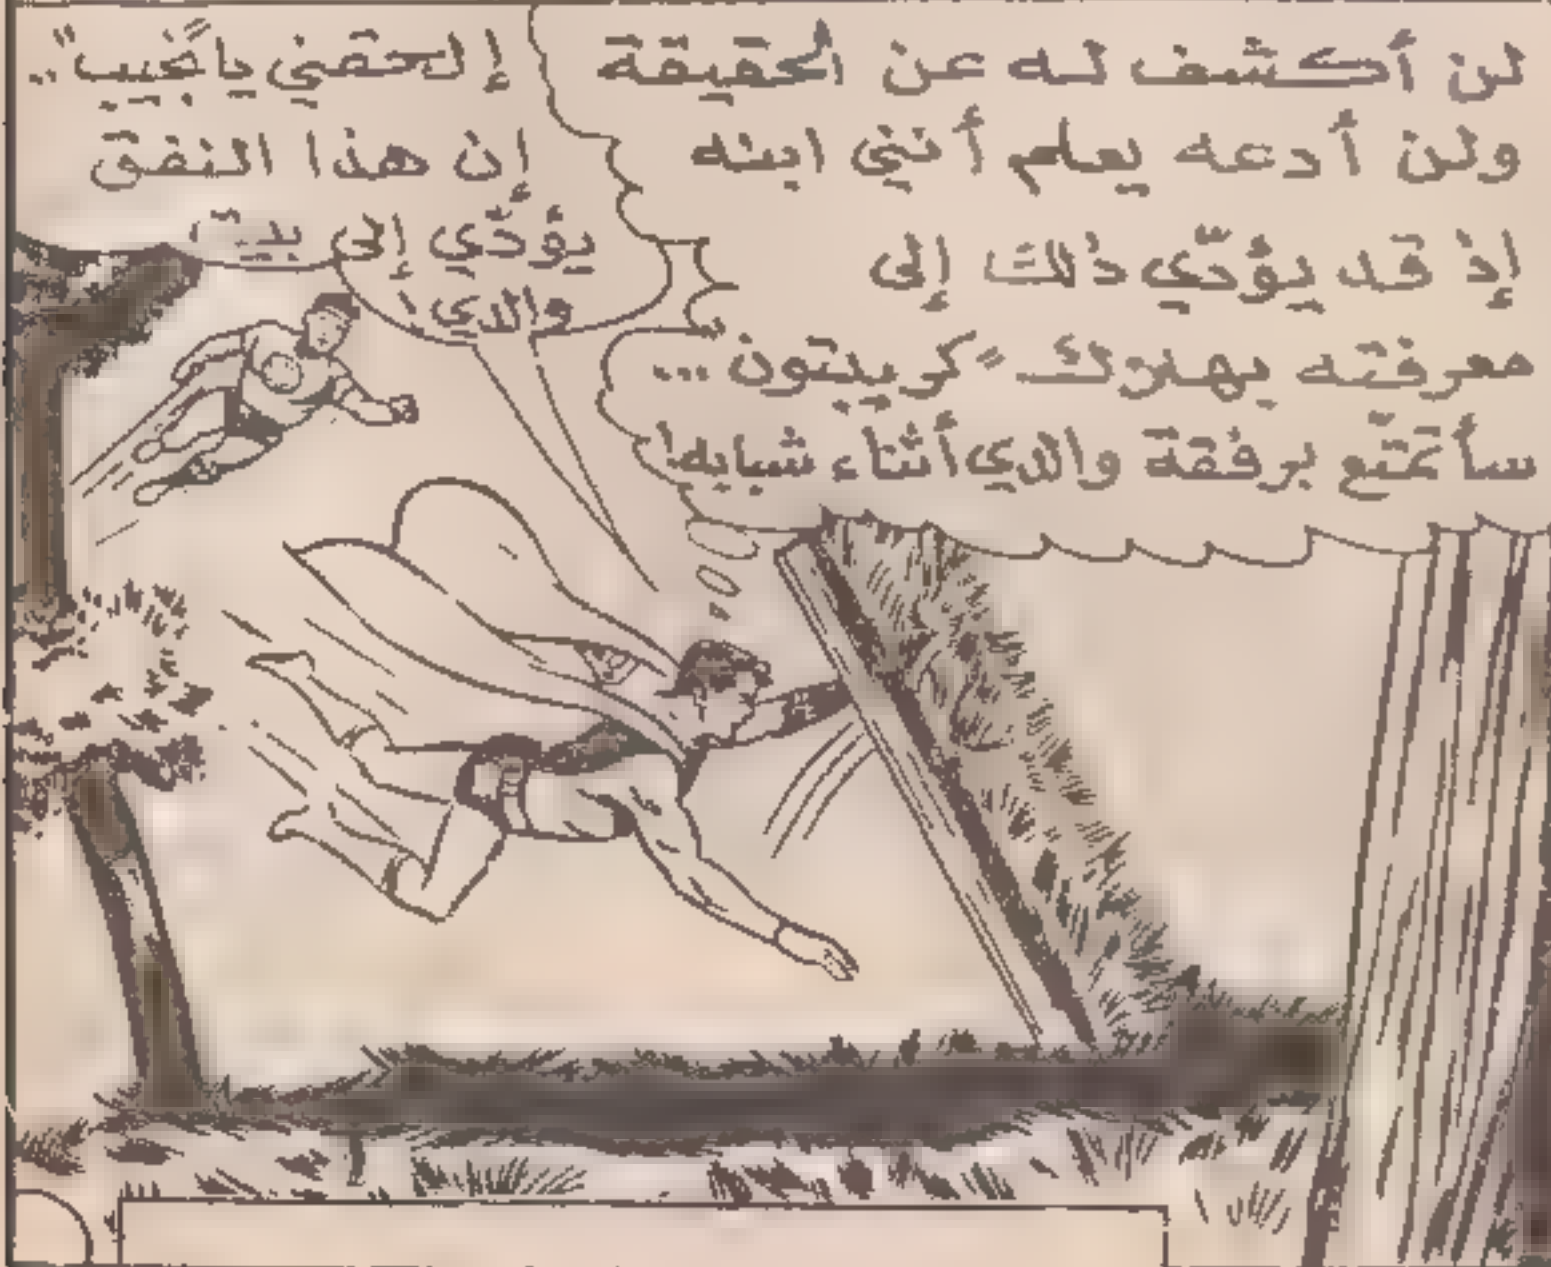 لن أكشف له عن الحقيقة
ولن أدعه يعلم أنني ابنه
إذ قد يؤدّي ذلك إلى
معرفته بهلاك "كريبتون ...
سأتمتّع برفقة والدي أثناء شبابه!
إلحقني يا نجيب"..
إن هذا النفق
يؤدّي إلى بيت
والدي!